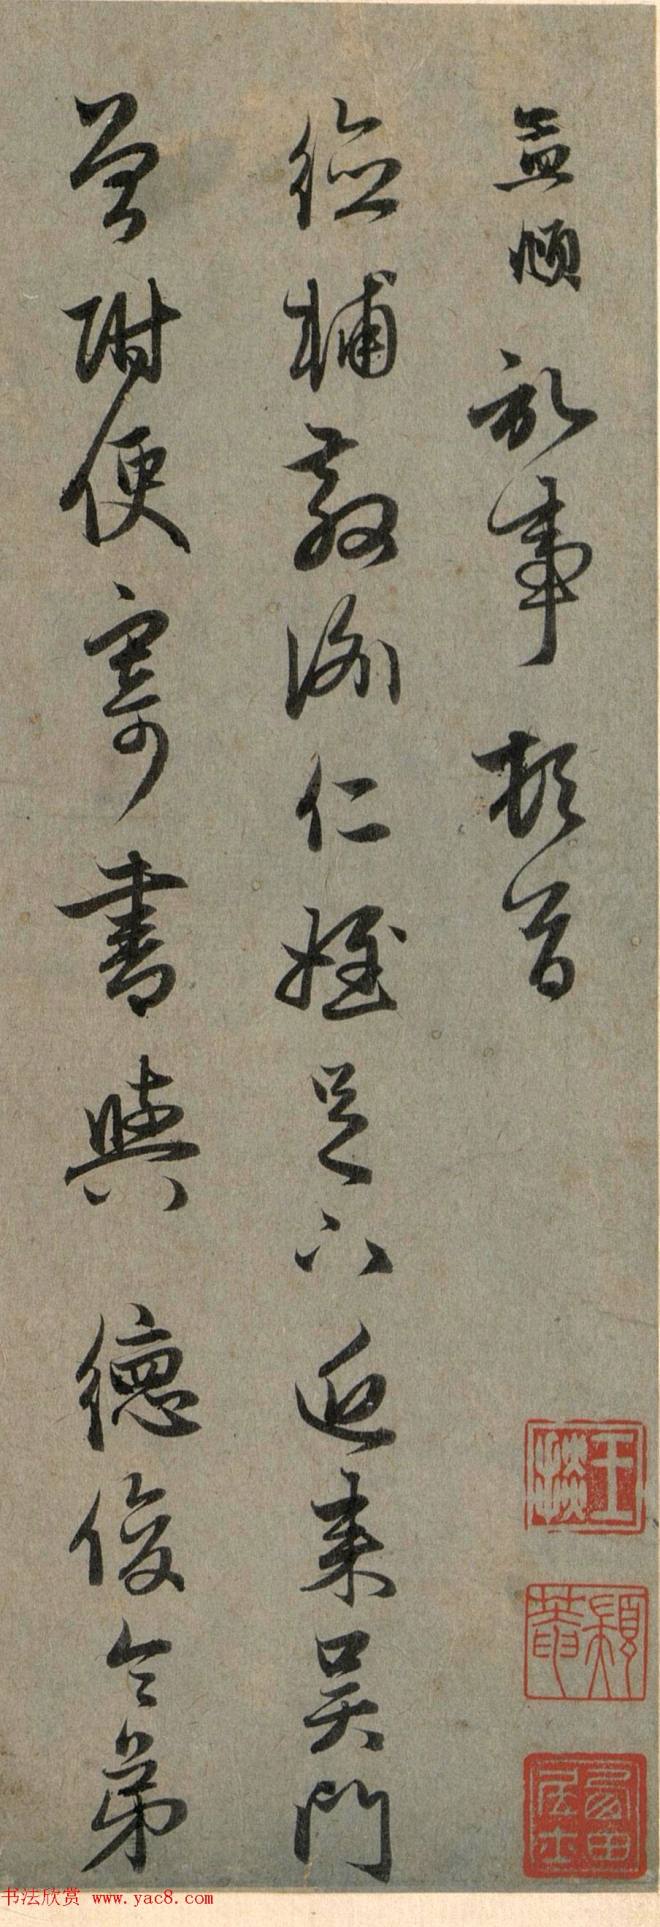 孟頫記事頓首
德輔教諭仁姪足下近來吳門
曾附便寄書與德俊令弟
王掞
书法欣赏 www.yac8.com